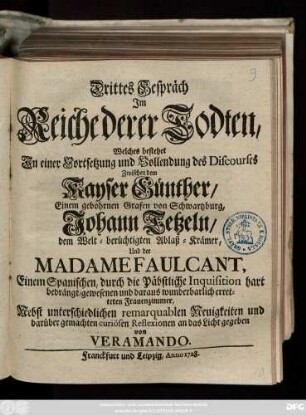 Drittes Gespräch
Im
Reiche derer Todten,
Welches bestehet
In einer Fortsetzung und Vollendung des Discourses
Zwischen dem
Kayser Günther/
Einem gebohrnen Grafen von Schwartzburg,
Johann Tetzeln/
dem Welt-berüchtigten Ablaß-Krämer,
Und der
MADAME FAULCANT,
Einem Spanischen, durch die Päbstliche Inquisition hart
bedrängt gewesenen und daraus wunderbarlich erret-
teten Frauenzimmer,
Nebst unterschiedlichen remarquablen Neuigkeiten und
darüber gemachten curiösen Reflexionen an das Licht gegeben
von
VERAMANDO.
Franckfurt und Leipzig, Anno 1728.